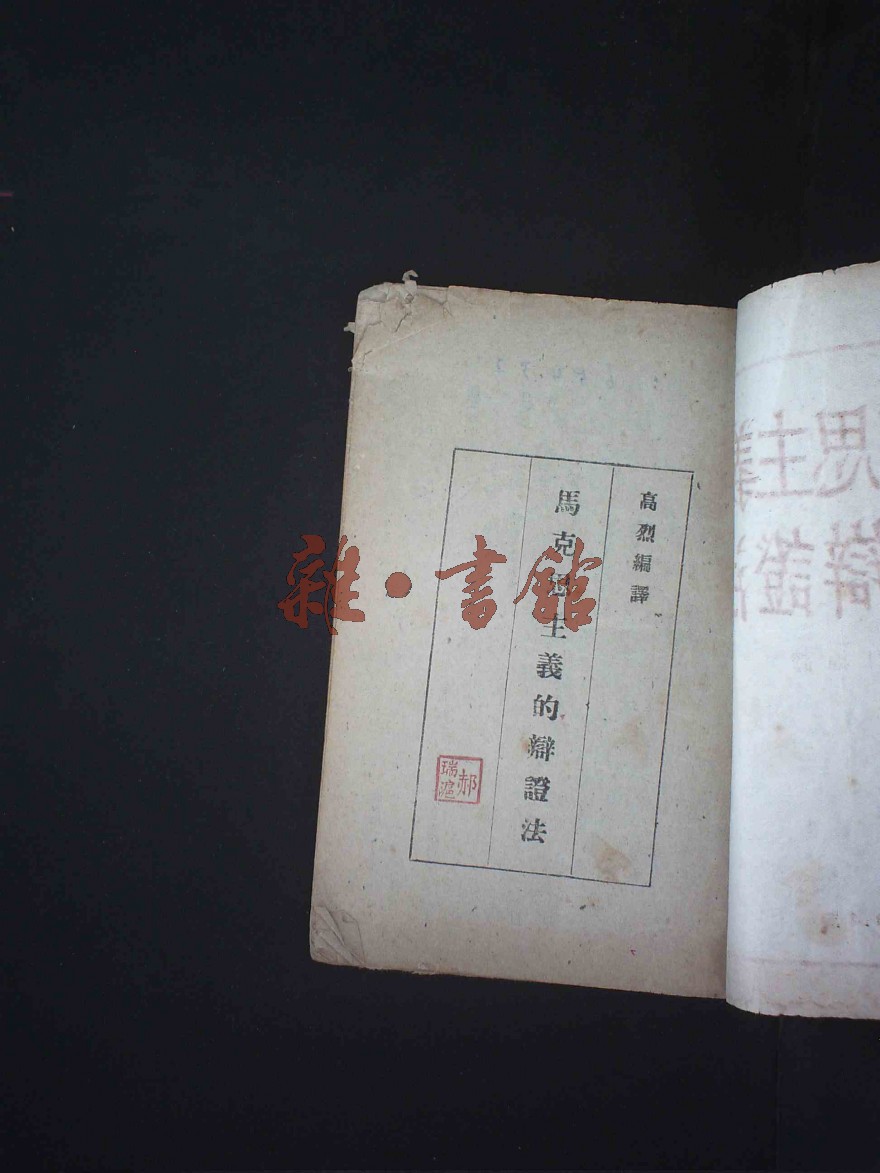 高烈編譯
馬克思主義的辯證法
郝瑞滬
雜·書館
思主義
辯證法